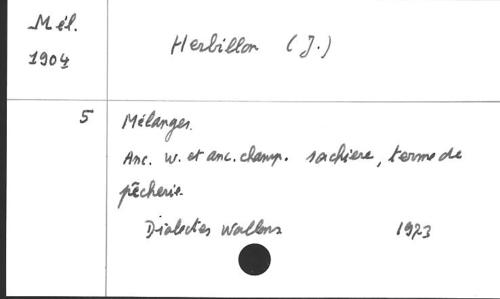 Mél.
1904
Herbillon (J.)
5
Mélanges.
Anc. w. et anc. champ. sachiere, terme de
pêcherie
Dialectes Wallons 1973